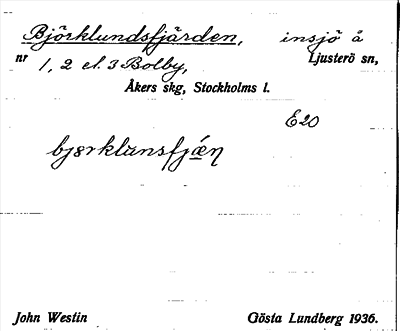 Björklundsfjärden, insjö å
nr 1, 2 el. 3 Bolby, Ljusterö sn,
Åkers skg, Stockholms l.
E20
bjørklunsfjǽη
John Westin Gösta Lundberg 1936.